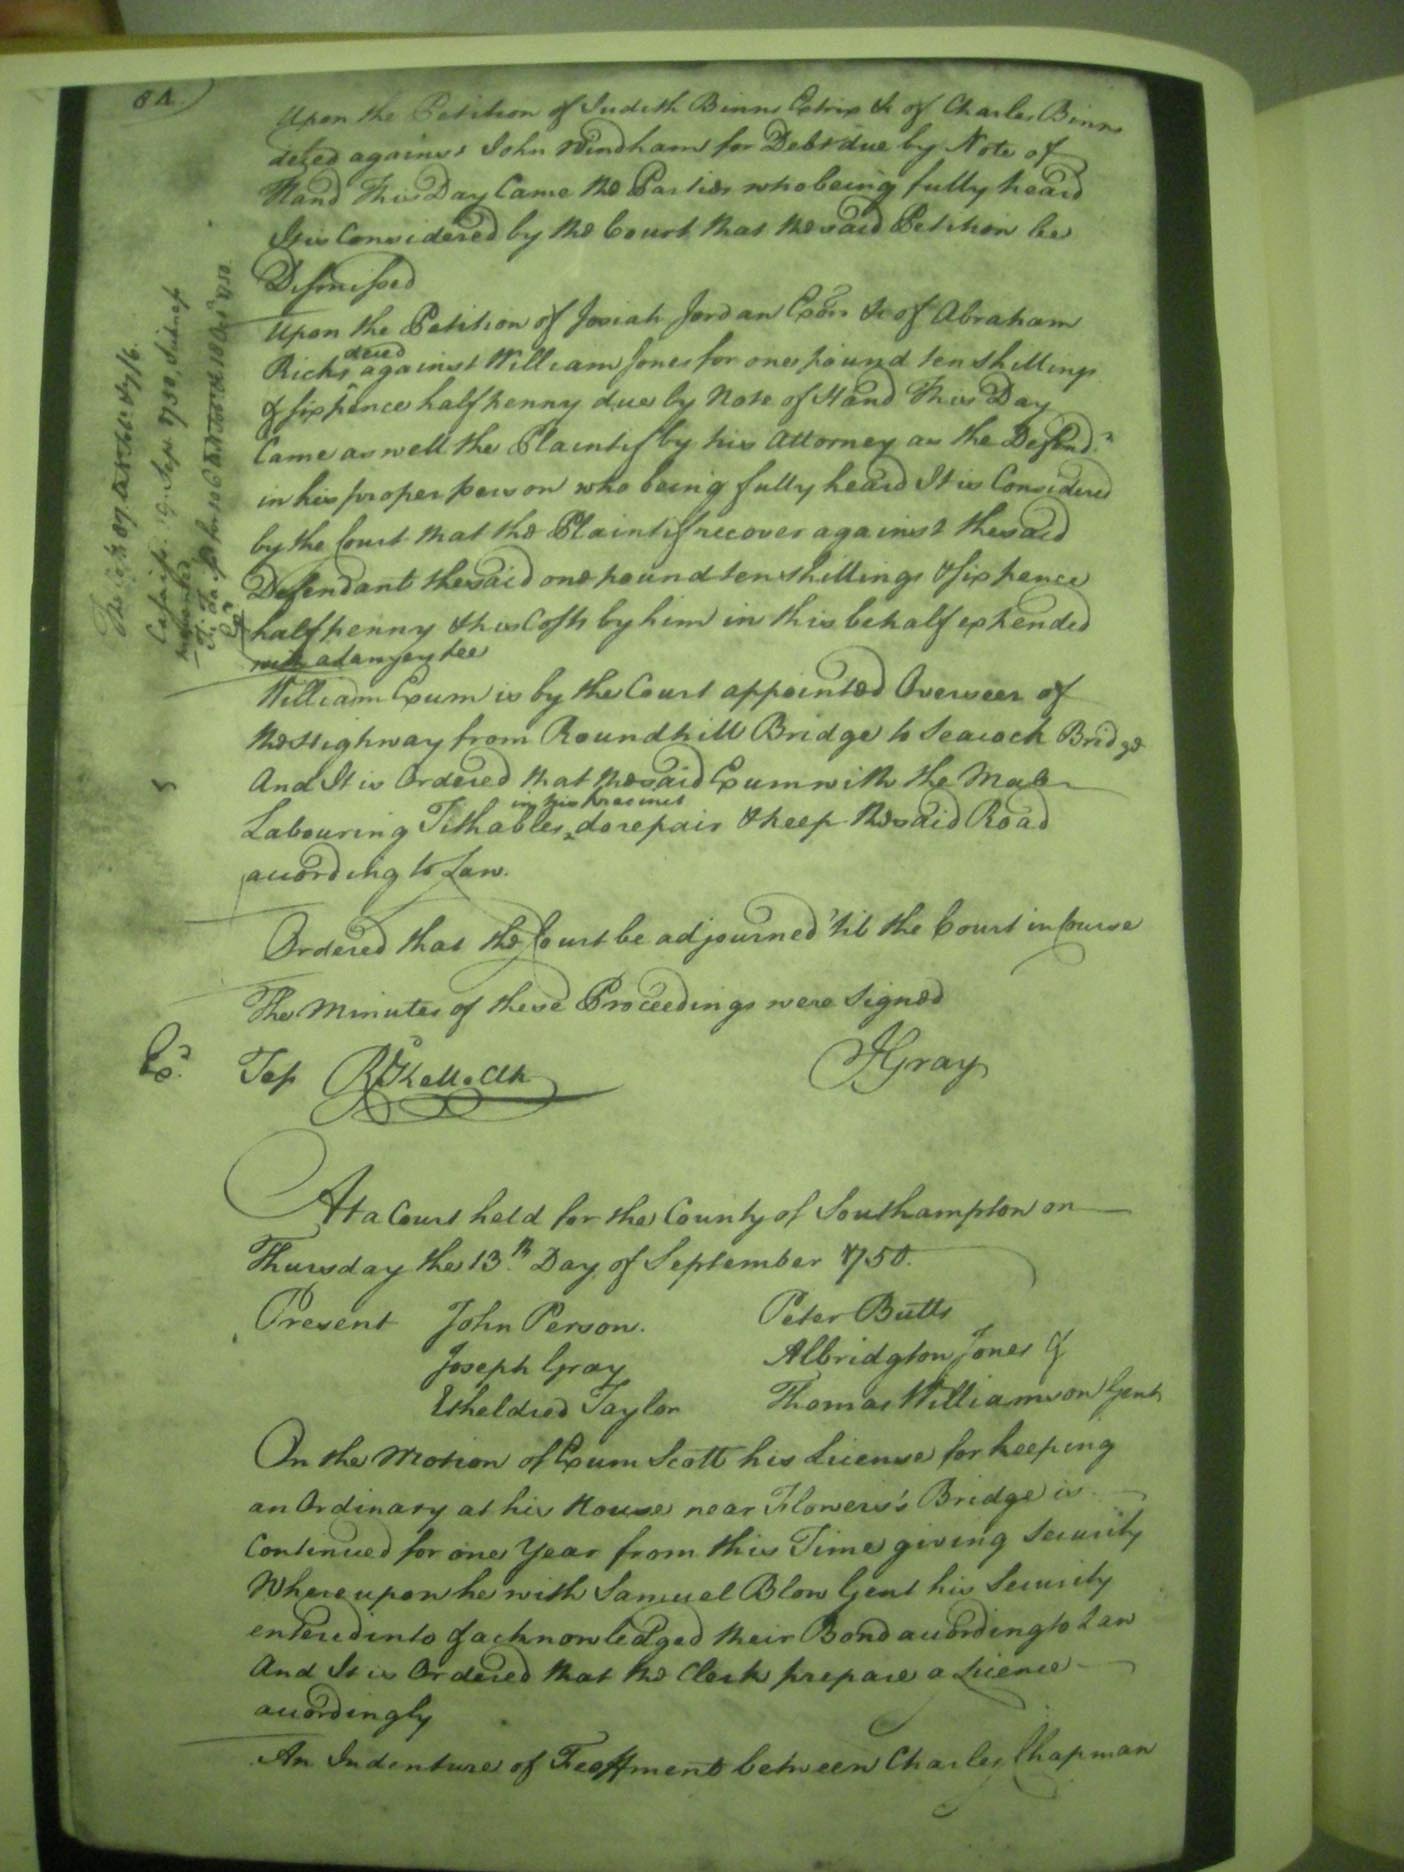 Upon the Petition of Judith Binns Extrix &c of Charles Binns
deced against John Windham for Debt due by Note of
Hand This Day Came the Parties who being fully heard
It is Considered by the Court that the said Petition be
Dismissed
Upon the Petition of Josiah Jordan Exōr &c of Abraham
Ricks deced against William Jones for one pound ten shillings
& sixpence halfpenny due by Note of Hand This Day
Came as well the Plaintif by his Attorney as the Defend.t
in his proper person who being fully heard It is Considered
by the Court that the Plaintif recover against the said
Defendant the said one pound ten shillings & sixpence
halfpenny & his Costs by him in this behalf expended
with attorneys fee
William Exum is by the Court appointed Overseer of
the Highway from Roundhill Bridge to Seacock Bridge
And It is Ordered that the said Exum with the Male
Labouring Tithables in his Precinct do repair & keep the said Road
according to Law.
Ordered that the Court be adjourned 'til the Court in Course
The Minutes of these Proceedings were Signed
Ex.d Tes R.d Kello Clk JGray
At a Court held for the County of Southampton on
Thursday the 13.th Day of September 1750.
Present John Person. Peter Butts
Joseph Gray Albridgton Jones &
Etheldred Taylor Thomas Williamson Gent
On the Motion of Exum Scott his License for keeping
an Ordinary at his House near Flowers's Bridge is
Continued for one Year from this Time giving Security
Whereupon he with Samuel Blow Gent his Security
entered into & acknowledged their Bond according to Law
And It is Ordered that the Clerk prepare a Licence
accordingly
An Indenture of Feoffment between Charles Chapman